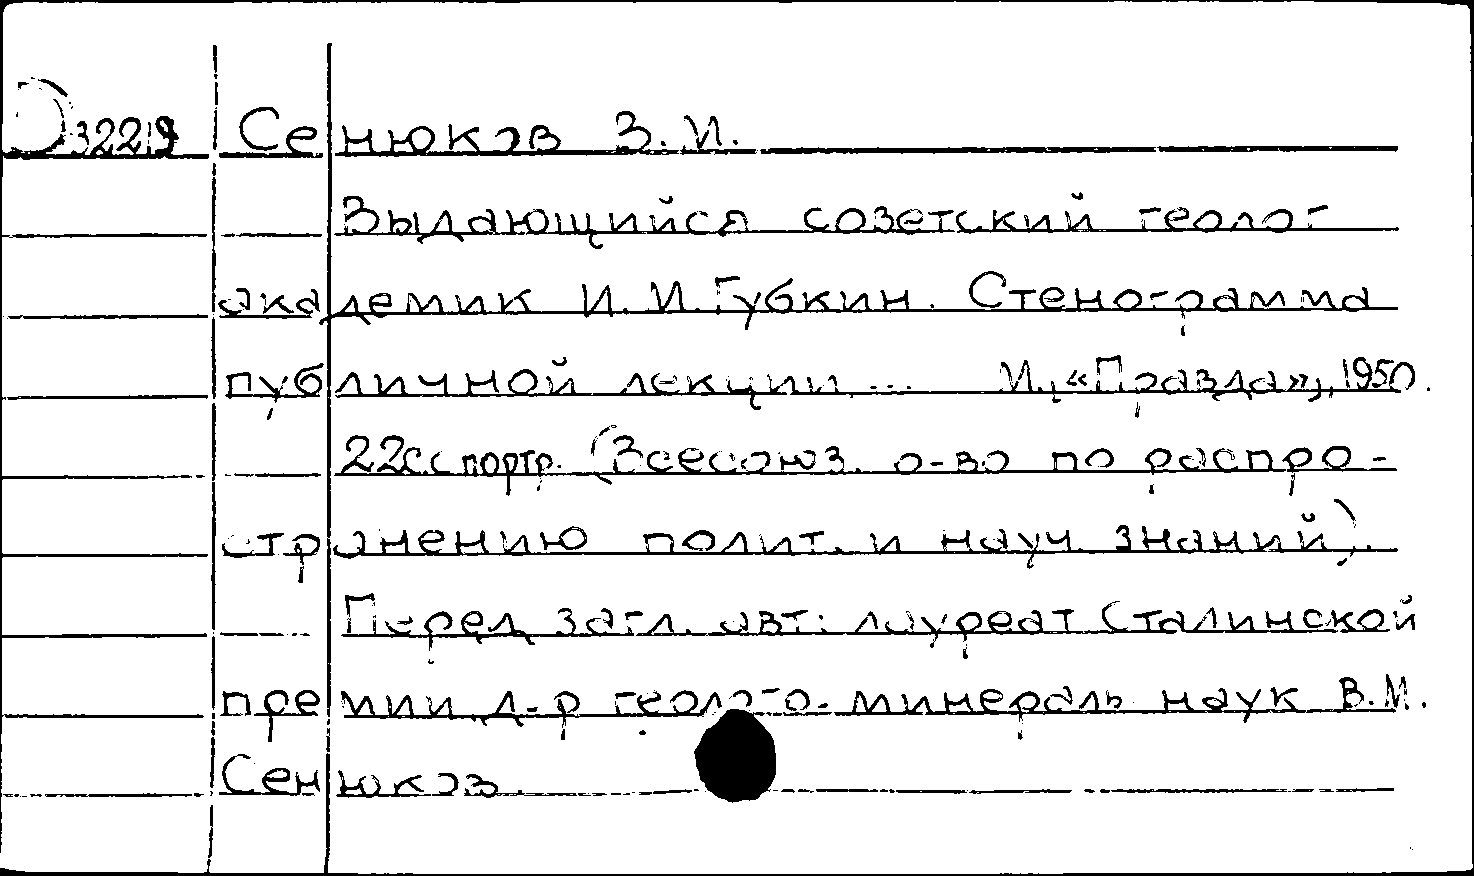 D32219 Сенюков В. М.
Выдающийся советский геолог
академик И. М. Губкин. Стенограмма
публичной лекции ... М., «Правда», 1950.
22с. с портр. (Всесоюз. о-во по распро-
странению полит. и науч. знаний).
Перед загл. авт: лауреат Сталинской
премии д-р геолого-минераль наук В.М.
Сенюков.